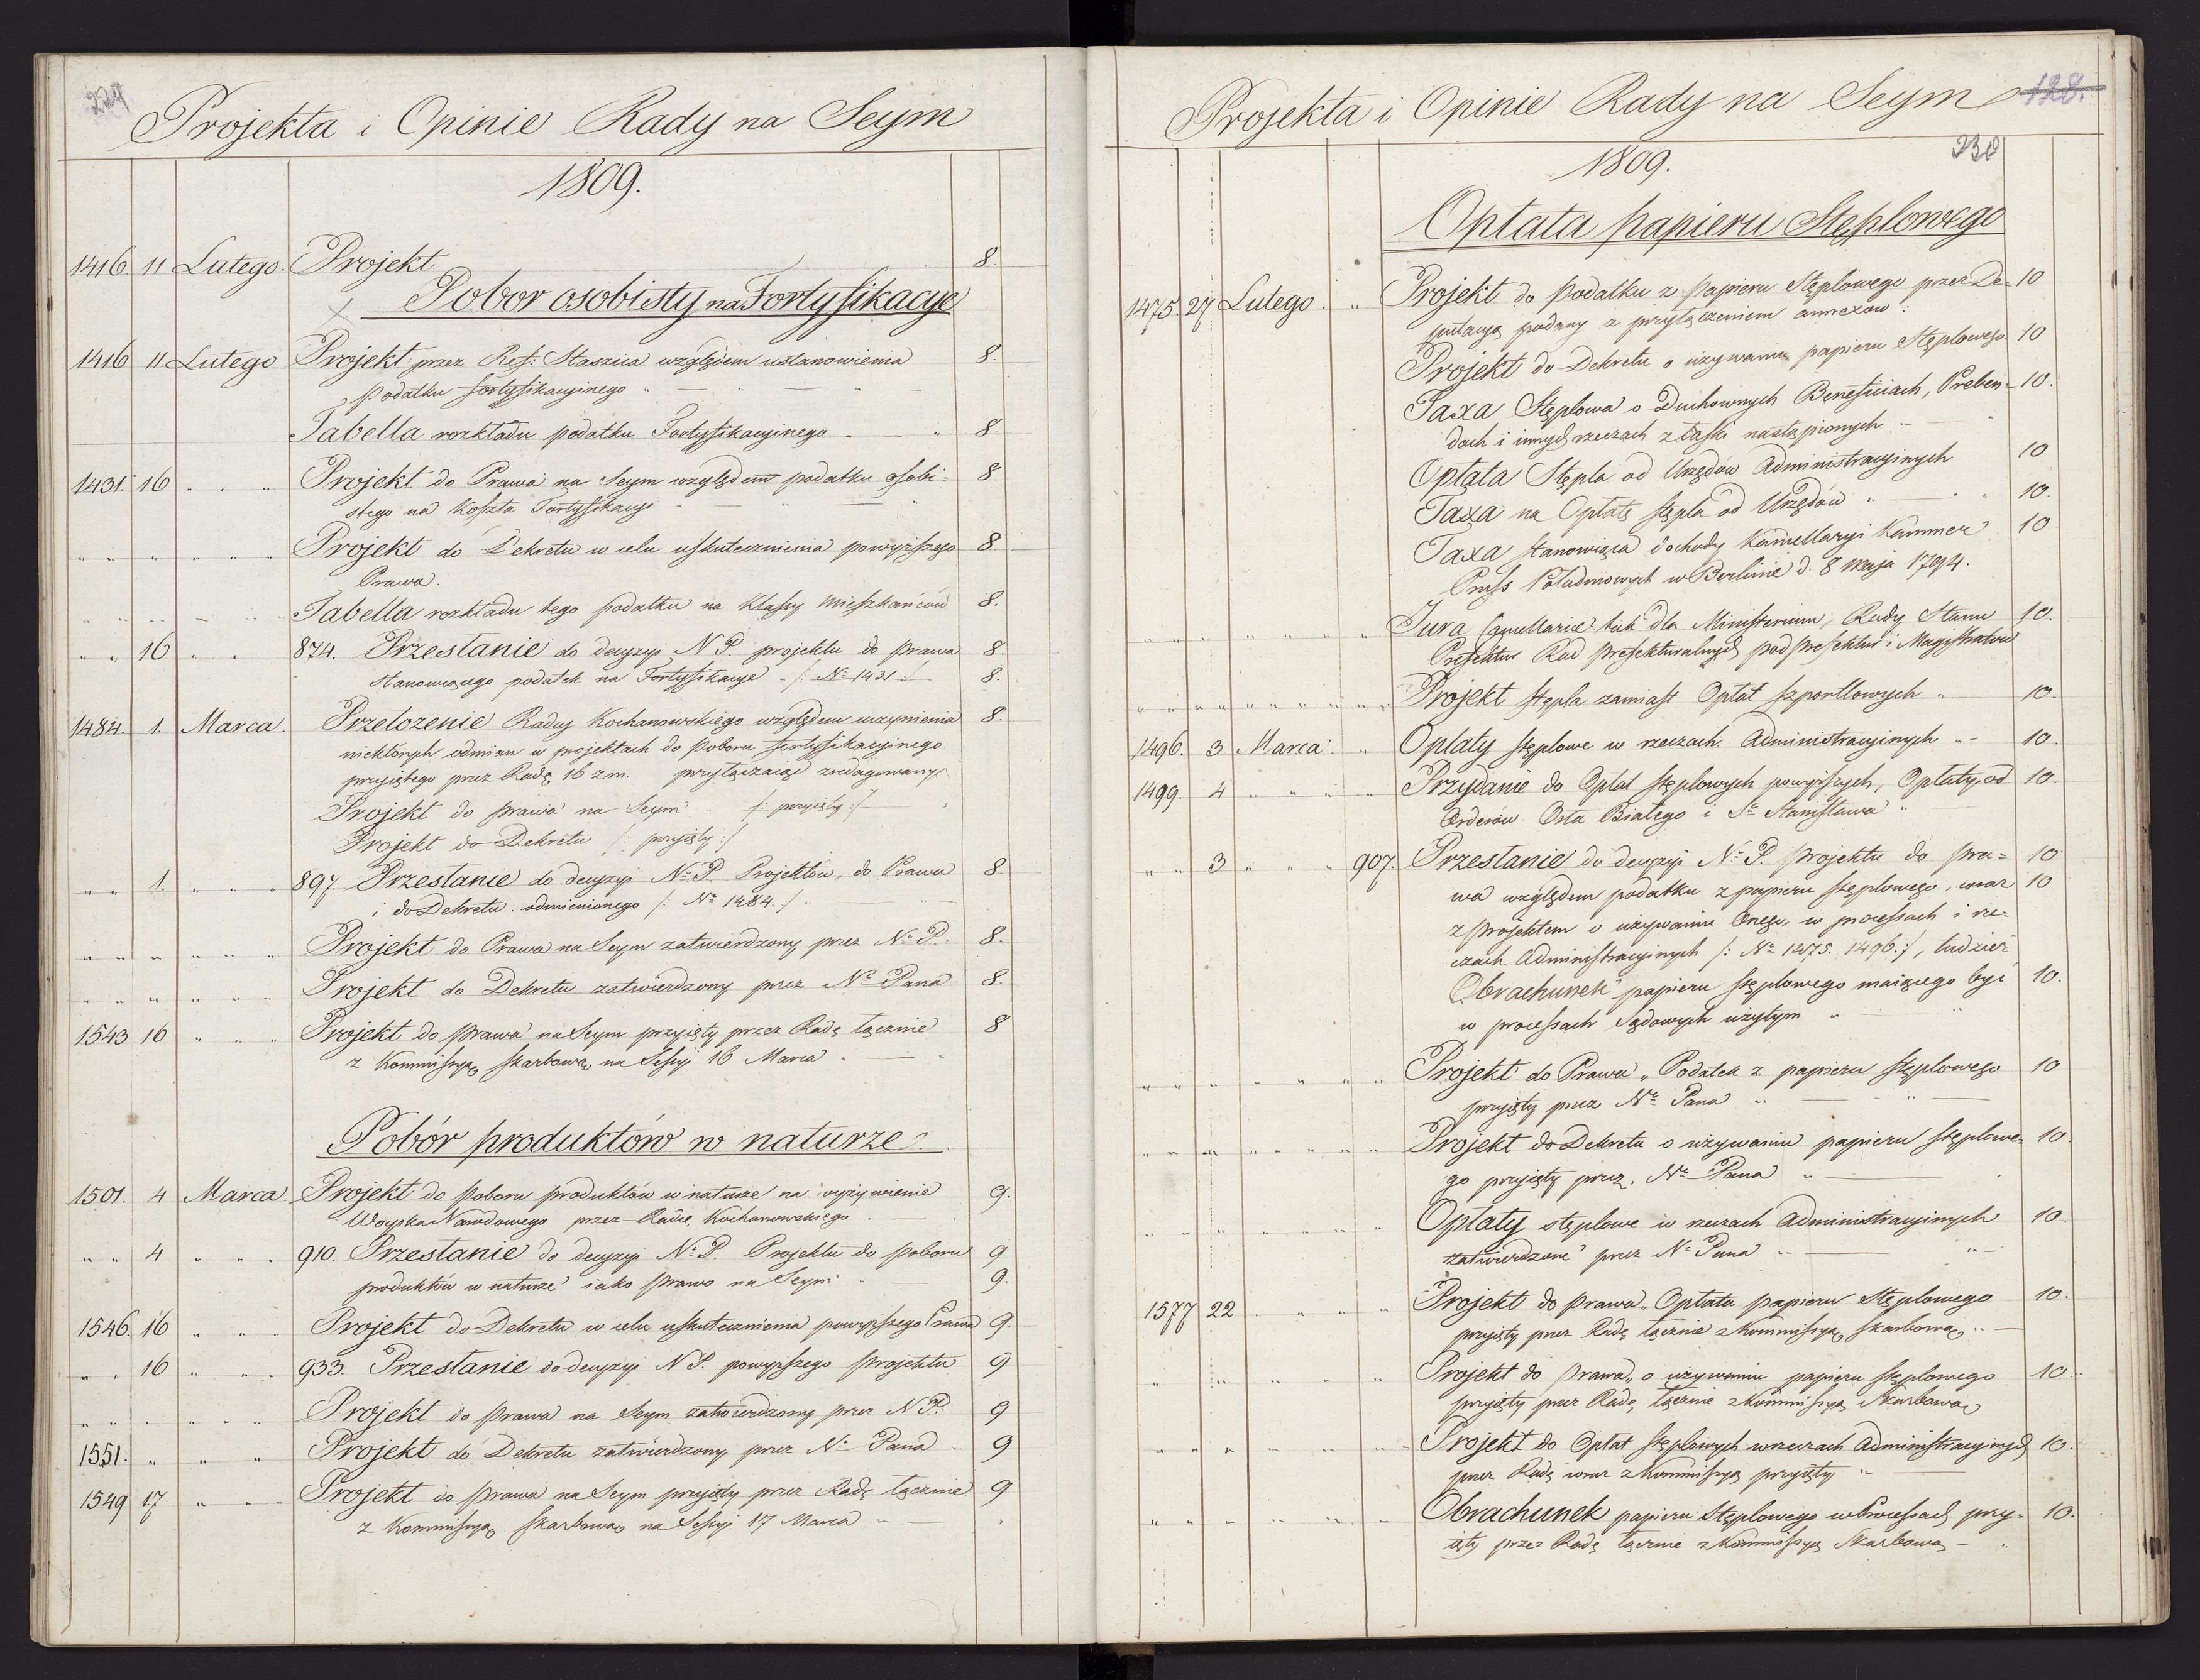 229
Projekta i Opinie Rady na Seym
1809.
1416 11 Lutego. Projekt 8.
Pobor osobisty na Fortyfikacye
1416 11 Lutego Projekt przez Ref: Staszica względem ustanowienia 8.
podatku fortyfikacyinego "
Tabella rozkładu podatku Fortyfikacyinego " 8.
1431. 16 " " Projekt do Prawa na Seym względem podatku osobi= 8.
stego na koszta Fortyfikacyi
" " " " " " Projekt do Dekretu w celu uskutecznienia powyższego 8
Prawa.
" " " " " Tabella rozkładu tego podatku na klassy mieszkańców 8.
" " 16 " " 874. Przesłanie do decyzyi N. P. projektu do prawa 8.
stanowiącego podatek na Fortyfikacye " /: No 1431 :/ 8.
1484. 1. Marca. Przełożenie Radcy Kochanowskiego względem uczynienia 8.
niektórych odmian w projektach do poboru fortyfikacyinego
przyiętego przez Radę 16 z.m. przyłączaiąc zredagowany
Projekt do prawa na Seym " /: przyięty :/
Projekt do Dekretu /: przyięty :/
" " 1. " " " 897. Przesłanie do decyzyi No P. Projektów do Prawa 8.
i do Dekretu odmienionego /: No 1484. :/
" " " " " " Projekt do Prawa na Seym zatwierdzony przez No P. 8.
" " " " " " Projekt do Dekretu zatwierdzony przez No Pana 8.
1543 16 " " " Projekt do prawa na Seym przyięty przez Radę łącznie 8
z Kommissyą skarbową na Sessyi 16 Marca "
Pobór produktów w naturze
1501. 4 Marca. Projekt do poboru produktów w naturze na wyżywienie 9.
Woyska Narodowego przez Radcę Kochanowskiego
" " 4 " " " 910. Przesłanie do decyzyi No P. Projektu do poboru 9
produktów w naturze iako prawo na Seym 9.
1546. 16 " " " Projekt do Dekretu w celu uskutecznienia powyższego Prawa 9.
" " 16 " " " 933. Przesłanie do decyzyi N. P. powyższego projektu 9
" " " " " Projekt do prawa na Seym zatwierdzony przez N. P. 9
1551. " " " Projekt do Dekretu zatwierdzony przez No Pana 9
1549 17 " " " Projekt do prawa na Seym przyięty przez Radę łącznie 9
z Kommissyą skarbową na Sessyi 17 Marca "
Projekta i Opinie Rady na Seym 128.
230
1809.
Opłata papieru Stęplowego
1475. 27 Lutego. " Projekt do podatku z papieru Stęplowego przez De= 10
putacyą podany z przyłączeniem annexów :
Projekt do Dekretu o używaniu papieru Stęplowego 10
Taxa Stęplowa o Duchownych Beneficiach, Preben= 10.
dach i innych rzeczach z łaski nastąpionych "
Opłata Stępla od Urzędów Administracyinych 10
Taxa na Opłatę stępla od Urzędów " 10.
Taxa stanowiąca dochody Kancellaryi Kammer 10
Pruss Południowych w Berlinie d. 8 Maja 1794.
" " " " " " Jura Cancellariae tak dla Ministerium, Rady Stanu 10.
Prefektur Rad prefekturalnych podprefektur i Magistratów
" " " " " " Projekt stępla zamiast Opłat szportlowych " 10.
1496. 3 Marca. " Opłaty stęplowe w rzeczach Administracyinych " 10.
1499. 4 " " " " Przydanie do Opłat stęplowych powyższych, Opłaty od 10.
Orderów Orła Białego i S. Stanisława "
" " 3 " " " 907. Przesłanie do decyzyi No P. projektu do pra= 10
wa względem podatku z papieru stęplowego, wraz 10
z projektem o używaniu onego, w processach i rze=
czach Administracyinych /: No 1475. 1496. :/, tudzież
Obrachunek papieru stęplowego maiącego być 10.
w processach Sądowych użytym "
" " " " " " Projekt do Prawa „ Podatek z papieru stęplowego 10
przyięty przez No Pana "
" " " " " " Projekt do Dekretu o używaniu papieru stęplowe= 10
go przyięty przez No Pana "
" " " " " Opłaty stęplowe w rzeczach Administracyinych 10.
zatwierdzone przez No Pana "
1577 22 " " " " Projekt do prawa „ Opłata papieru Stęplowego 10.
przyięty przez Radę łącznie z Kommissyą skarbową "
" " " " " Projekt do prawa „ o używaniu papieru stęplowego 10.
przyięty przez Radę łącznie z Kommissyą Skarbową
" " " " " " Projekt do Opłat stęplowych w rzeczach Administracyinych 10.
przez Radę wraz z Kommissyą przyięty "
" " " " " " Obrachunek papieru Stęplowego w Processach przy= 10.
ięty przez Radę łącznie z Kommissyą Skarbową